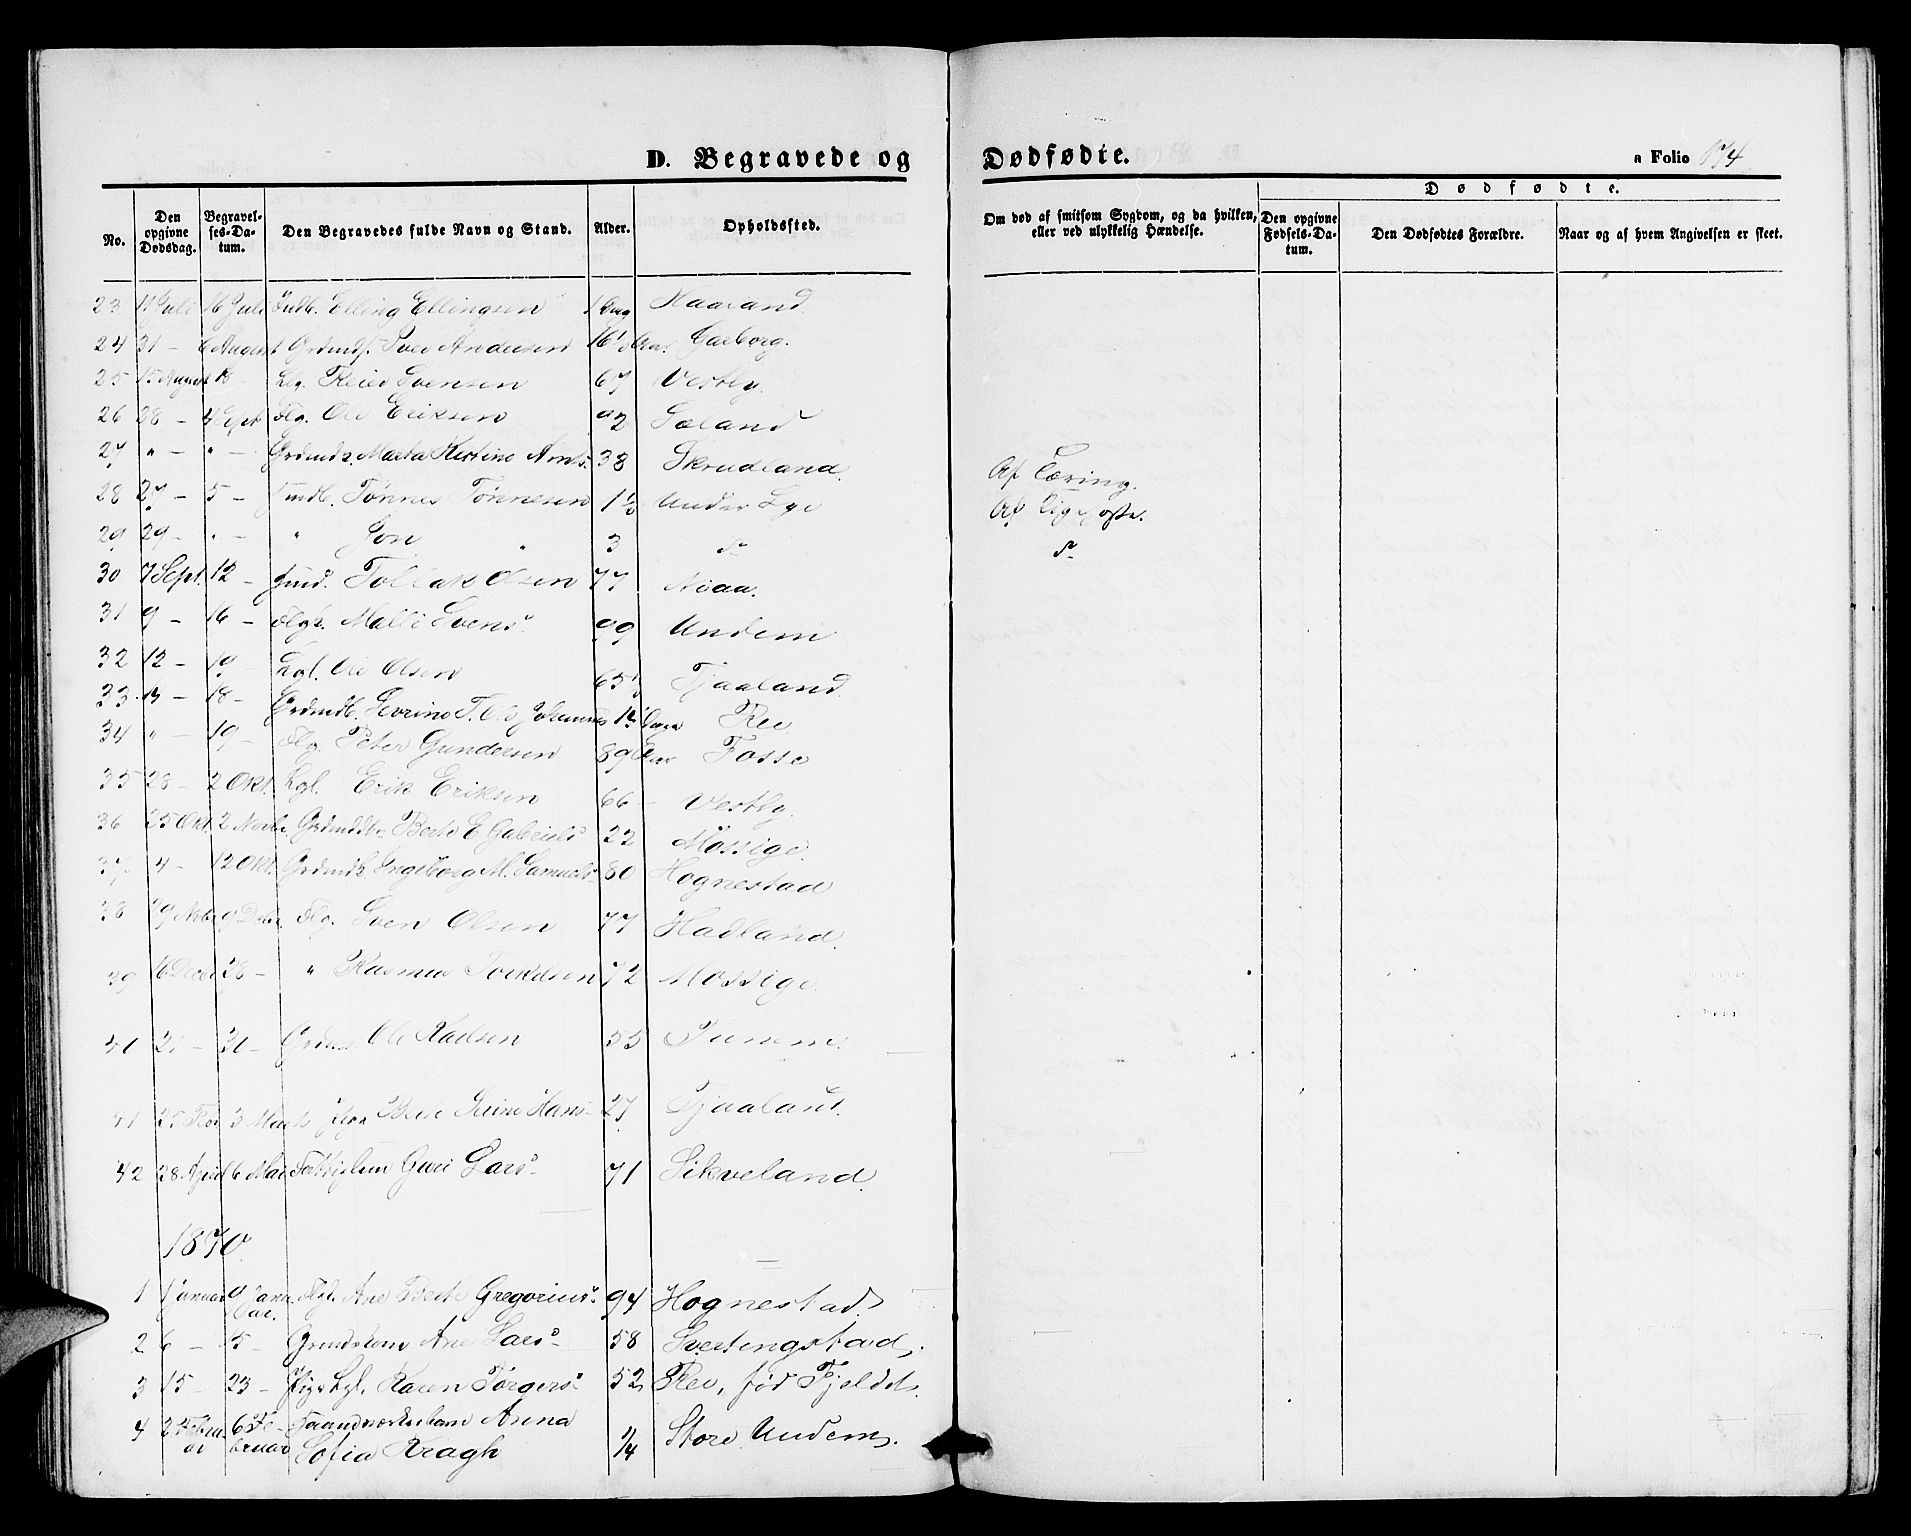 D. Begravede og Dødfødte.
a Folio 174
Dødfødte.
No.
Den opgivne Dødsdag.
Begravelses-Datum.
Den Begravedes fulde Navn og Stand.
Alder.
Opholdssted.
Om død af smitsom Sygdom, og da hvilken, eller ved ulykkelig Hændelse.
Den opgivne Fødsels-Datum.
Den Dødfødtes Forældre.
Naar og af hvem Angivelsen er skeet.
23 11 Juli 16 Juli Indb. Elling Ellingsen 1 Dag Haarland
24 31 - 6 August Grdmds. Iver Andersen 16 1/2 Aar. Garborg.
25 15 August 18 - Lg. Reier Svensen 67 Vestly.
26 28 - 4 Sept Flg. Ole Eriksen 92 Sæland
27 " - " - Grdmds. Marta Kirstine Arnts. 38 Skrudland. Af Tæring.
28 27 - 5 - Tønnes Tønnesen 1 1/2 Under Lye Af
29 29 - " - " Jon " 3 do do
30 7 Sept. 12 - Tollak Olsen 77 Njaa.
31 9 - 16 - Flgk. Malli Svens. 99 Undem
32 12 - 19 - Lgl. Ole Olsen 65 1/2 Tjaaland
33 - 18 - Grdmdb. Severine T. Ree
34 " - 19 - Flg. Peter Gundersen 89 Aar Fosse
35 28 - 2 Okt. Lgl. Erik Eriksen 66 - Vestly.
36 25 Okt. 2 Novbr Berte E Gabriels 22 Mossige.
37 4 - 12 Okt. Grdmdk. Ingeborg M. Samuels. 80 Hognestad
38 29 Nvbr 9 Debr. Flg. Sven Olsen 77 Hadland.
39 16 Decbr 28 - " Rasmus Torkelsen 72 Mossige.
41 21 - 31 - Ole Karlsen 55 Tunem.
41 25 Feb 3 Marts Berte Serine Hans. 27 Tjaaland.
42 28 April 6 Mai Guri Lars. 71 Sikveland.
1870.
1 1 Januar 9 Januar. Flgl. Ane Berte Gregorius. 94 Hognestad.
2 6 - 15 - Ane Lars. 58 Svertingstad.
3 15 - 23 - Pige Lgl. Karen Torgers. 52 Ree, fød Fjeldet.
4 2 Februar 6 Februar Haandværksbarn Anna
Sofia Kragh 1/4 Store Undem.